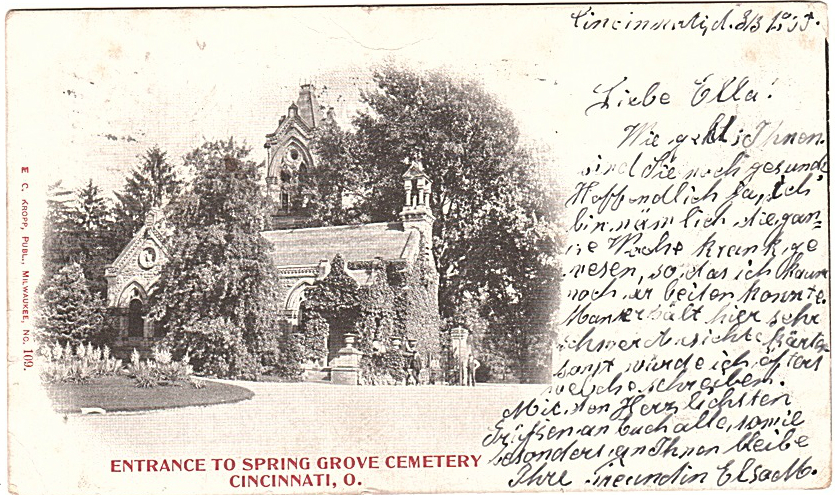 Cincinnati, d. 3/3
Liebe Ella!
Wie geht's Ihnen,
sind Sie noch gesund
Hoffendlich ja, ich
bin nämlich die gan=
ze Woche krank ge
wesen, so das ich kaum
noch arbeiten konnte.
Man erhält hier sehr
schwer Ansichtskarten
sonst würde ich öfters
welche schreiben.
Mit den Herzlichsten
Grüßen an Euch alle, sowie
besonders an Ihnen bleibe
Ihre Freundin Elsa M.
E. C. KROPP, PUBL., MILWAUKEE, NO. 109.
ENTRANCE TO SPRING GROVE CEMETERY
CINCINNATI, O.